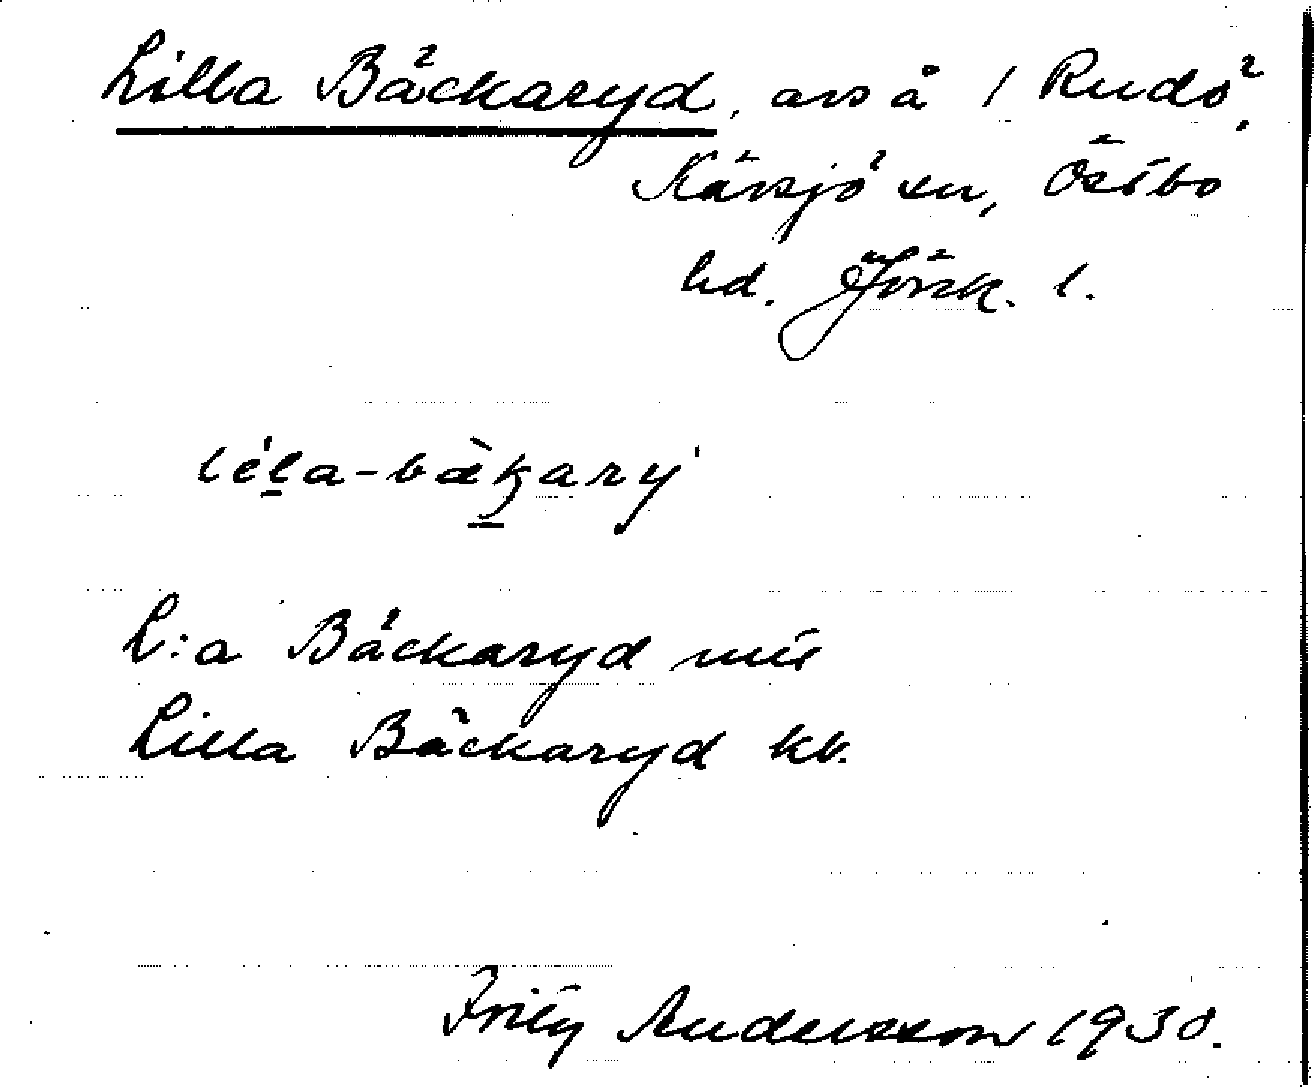 Lilla Bäckaryd, avs å 1 Rudö,
Kävsjö sn, Östbo
hd. Jönk. l.
léla-bàkary'
L:a Bäckaryd
Lilla Bäckaryd kb.
Andersson 1930.